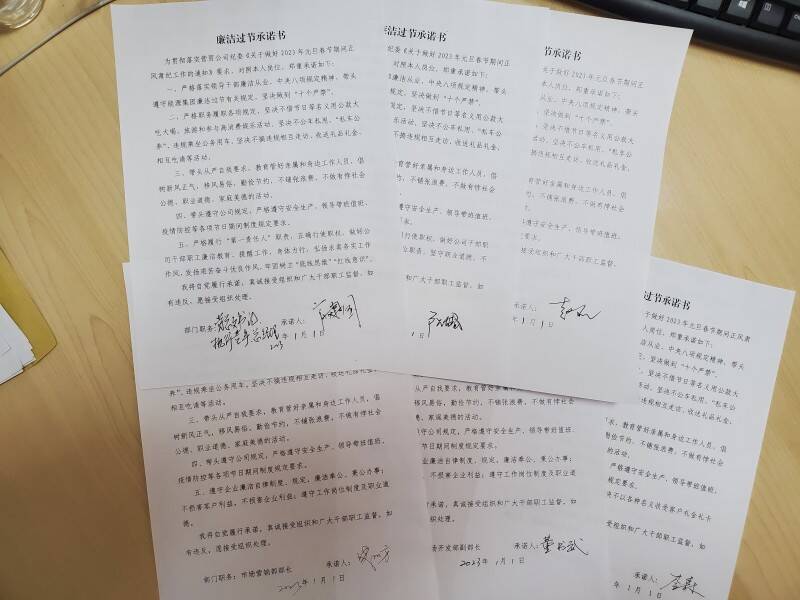 廉洁过节承诺书
为贯彻落实营商公司纪委《关于做好 2023 年元旦春节期间正
风肃纪工作的通知》要求，对照本人岗位，郑重承诺如下：
一、严格落实领导干部廉洁从业、中央八项规定精神，带头
遵守能源集团廉洁过节有关规定，坚决做到“十个严禁”。
二、严格职务履职各项规定，坚决不借节日等名义用公款大
吃大喝、旅游和参与高消费娱乐活动，坚决不公车私用、“私车公
养”、违规乘坐公务用车，坚决不搞违规相互走访、收送礼品礼金、
相互吃请等活动。
三、带头从严自我要求，教育管好亲属和身边工作人员，倡
树新风正气，移风易俗，勤俭节约，不铺张浪费，不做有悖社会
公德、职业道德、家庭美德的活动。
四、带头遵守公司规定，严格遵守安全生产、领导带班值班、
疫情防控等各项节日期间制度规定要求。
五、严格履行“第一责任人”职责，正确行使职权，做好公
司干部职工廉洁教育、提醒工作，身体力行，弘扬求真务实工作
作风，发扬艰苦奋斗优良作风，牢固树立“底线思维”“红线意识”。
我将自觉履行承诺，真诚接受组织和广大干部职工监督，如
有违反，愿接受组织处理。
部门职务： 承诺人：
年 1 月 1 日
洁过节承诺书
纪委《关于做好 2023 年元旦春节期间正
对照本人岗位，郑重承诺如下：
廉洁从业、中央八项规定精神，带头
规定，坚决做到“十个严禁”。
规定，坚决不借节日等名义用公款大
乐活动，坚决不公车私用、“私车公
不搞违规相互走访、收送礼品礼金、
育管好亲属和身边工作人员，倡
，不铺张浪费，不做有悖社会
遵守安全生产、领导带班值班、
求。
行使职权，做好公司干部职
和广大干部职工监督，如
承诺人：
1 日
节承诺书
关于做好 2023 年元旦春节期间正
人岗位，郑重承诺如下：
从业、中央八项规定精神，带头
坚决做到“十个严禁”。
坚决不借节日等名义用公款大
坚决不公车私用、“私车公
违规相互走访、收送礼品礼金、
管好亲属和身边工作人员，倡
不铺张浪费，不做有悖社会
遵守安全生产、领导带班值班、
受组织和广大干部职工监督，如
承诺人：
年 1 月 1 日
养”、违规乘坐公务用车，坚决不搞违规相互走访、收送礼品礼金、
相互吃请等活动。
三、带头从严自我要求，教育管好亲属和身边工作人员，倡
树新风正气，移风易俗，勤俭节约，不铺张浪费，不做有悖社会
公德、职业道德、家庭美德的活动。
四、带头遵守公司规定，严格遵守安全生产、领导带班值班、
疫情防控等各项节日期间制度规定要求。
五、遵守企业廉洁自律制度、规定，廉洁奉公、秉公办事；
不损害客户利益，不损害企业利益；遵守工作岗位制度及职业道
德。
我将自觉履行承诺，真诚接受组织和广大干部职工监督，如
有违反，愿接受组织处理。
部门职务：市场营销部部长 承诺人：
2023年 1 月 1 日
从严自我要求，教育管好亲属和身边工作人员，倡
移风易俗，勤俭节约，不铺张浪费，不做有悖社会
道德、家庭美德的活动。
守公司规定，严格遵守安全生产、领导带班值班、
节日期间制度规定要求。
业廉洁自律制度、规定，廉洁奉公、秉公办事；
不损害企业利益；遵守工作岗位制度及职业道
承诺，真诚接受组织和广大干部职工监督，如
组织处理。
开发部副部长 承诺人：
2023年 1 月 1 日
过节承诺书
《关于做好 2023 年元旦春节期间正风肃
人岗位，郑重承诺如下：
从业、中央八项规定精神，带头
坚决做到“十个严禁”。
坚决不借节日等名义用公款大
坚决不公车私用、“私车公
教育管好亲属和身边工作人员，倡
不铺张浪费，不做有悖社会
的活动。
严格遵守安全生产、领导带班值班，
规定要求。
决不以各种名义收受客户礼金礼卡
受组织和广大干部职工监督，如
承诺人：
年 1 月 1 日